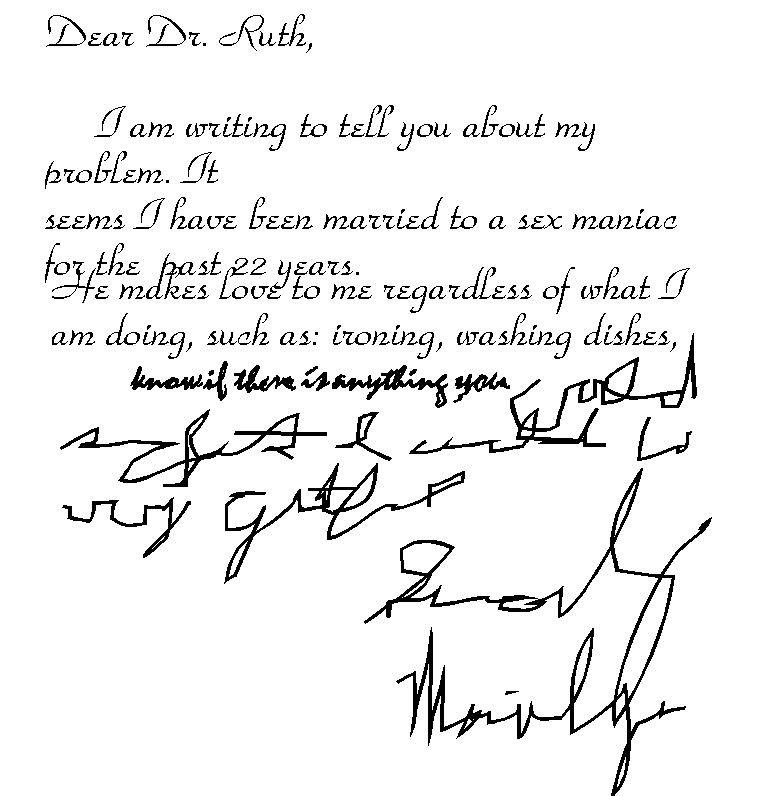 Dear Dr. Ruth,
I am writing to tell you about my
problem. It
seems I have been married to a sex maniac
for the past 22 years.
He makes love to me regardless of what I
am doing, such as: ironing, washing dishes,
know if there is anything you
could
I
very
Sincerely